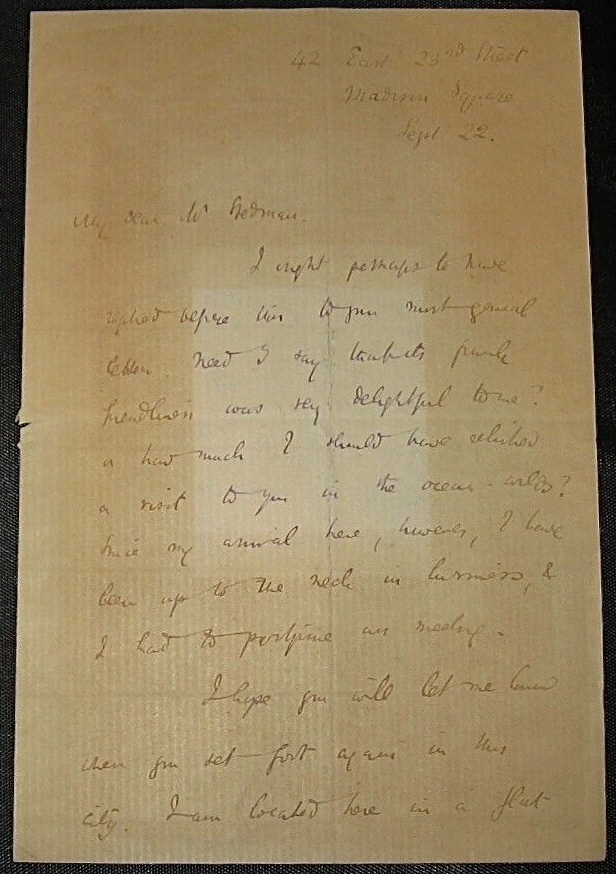 42 East 23rd Street
Madison Square
Sept 22.
My dear Mr Stedman.
I ought perhaps to have
replied before this to your most genial
letter. Need I say that its frank
friendliness was very delightful to me?
or how much I should have relished
a visit to you in the ocean-wilds?
Since my arrival here, however, I have
been up to the neck in business, &
I had to postpone our meeting.
I hope you will let me know
when you set foot again in this
city. I am located here in a flat